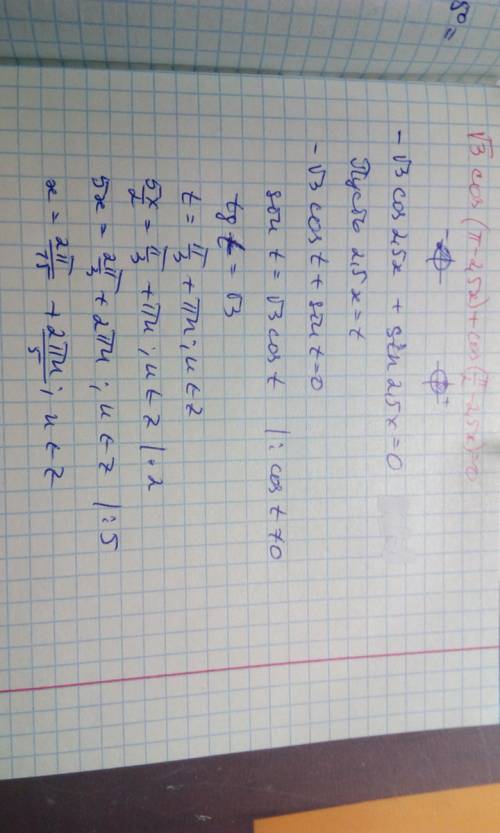 5° =
√3 cos (π - 2,5x) + cos (π/2 - 2,5x) = 0
- +
- √3 cos 2,5x + sin 2,5x = 0
Пусть 2,5x = t
- √3 cos t + sin t = 0
sin t = √3 cos t | : cos t ≠ 0
tg t = √3
t = π/3 + πn; n ∈ z
5x/2 = π/3 + πn; n ∈ z | · 2
5x = 2π/3 + 2πn; n ∈ z | : 5
x = 2π/15 + 2πn/5; n ∈ z